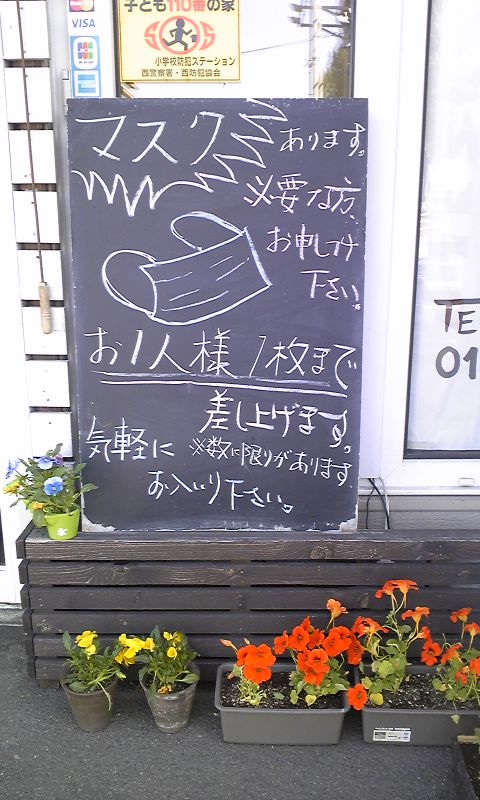 VISA
JCB
子ども110番の家
SOS
小学校防犯ステーション
西警察署・西防犯協会
マスク
あります。
必要な方、
お申しつけ
下さい。
お1人様1枚まで
差し上げます。
気軽に
※数に限りがあります。
お入り下さい。
TE
01